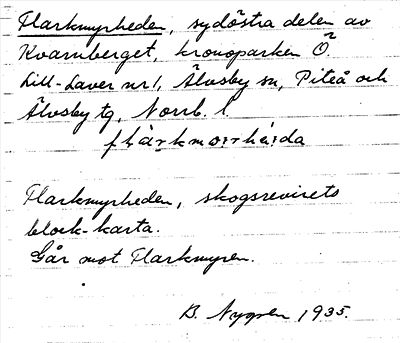 Flarkmyrheden, sydöstra delen av
Kvarnberget, kronoparken Ö.
Lill-Laver nr 1, Älvsby sn, Piteå och
Älvsby tg, Norrb. l.
flárkmo:rhè:da
Flarkmyrheden, skogsrevirets
block-karta.
Går mot Flarkmyren.
B. Nygren 1935.